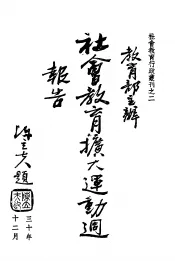 社會教育行政叢刊之二
教育部主辦
社會教育擴大運動週
報告
陳立夫題
三十年
十二月